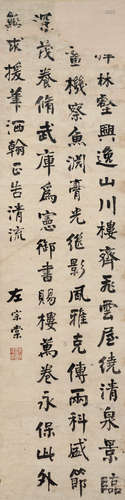 坪林壑興逸山川樓齊飛雲屋繞清泉景臨
畫機察魚淵霄光繼影風雅克傳兩科盛節
深茂養脩武庫爲憲御書賜樓萬卷永保此外
無求援筆洒翰正告清流
左宗棠